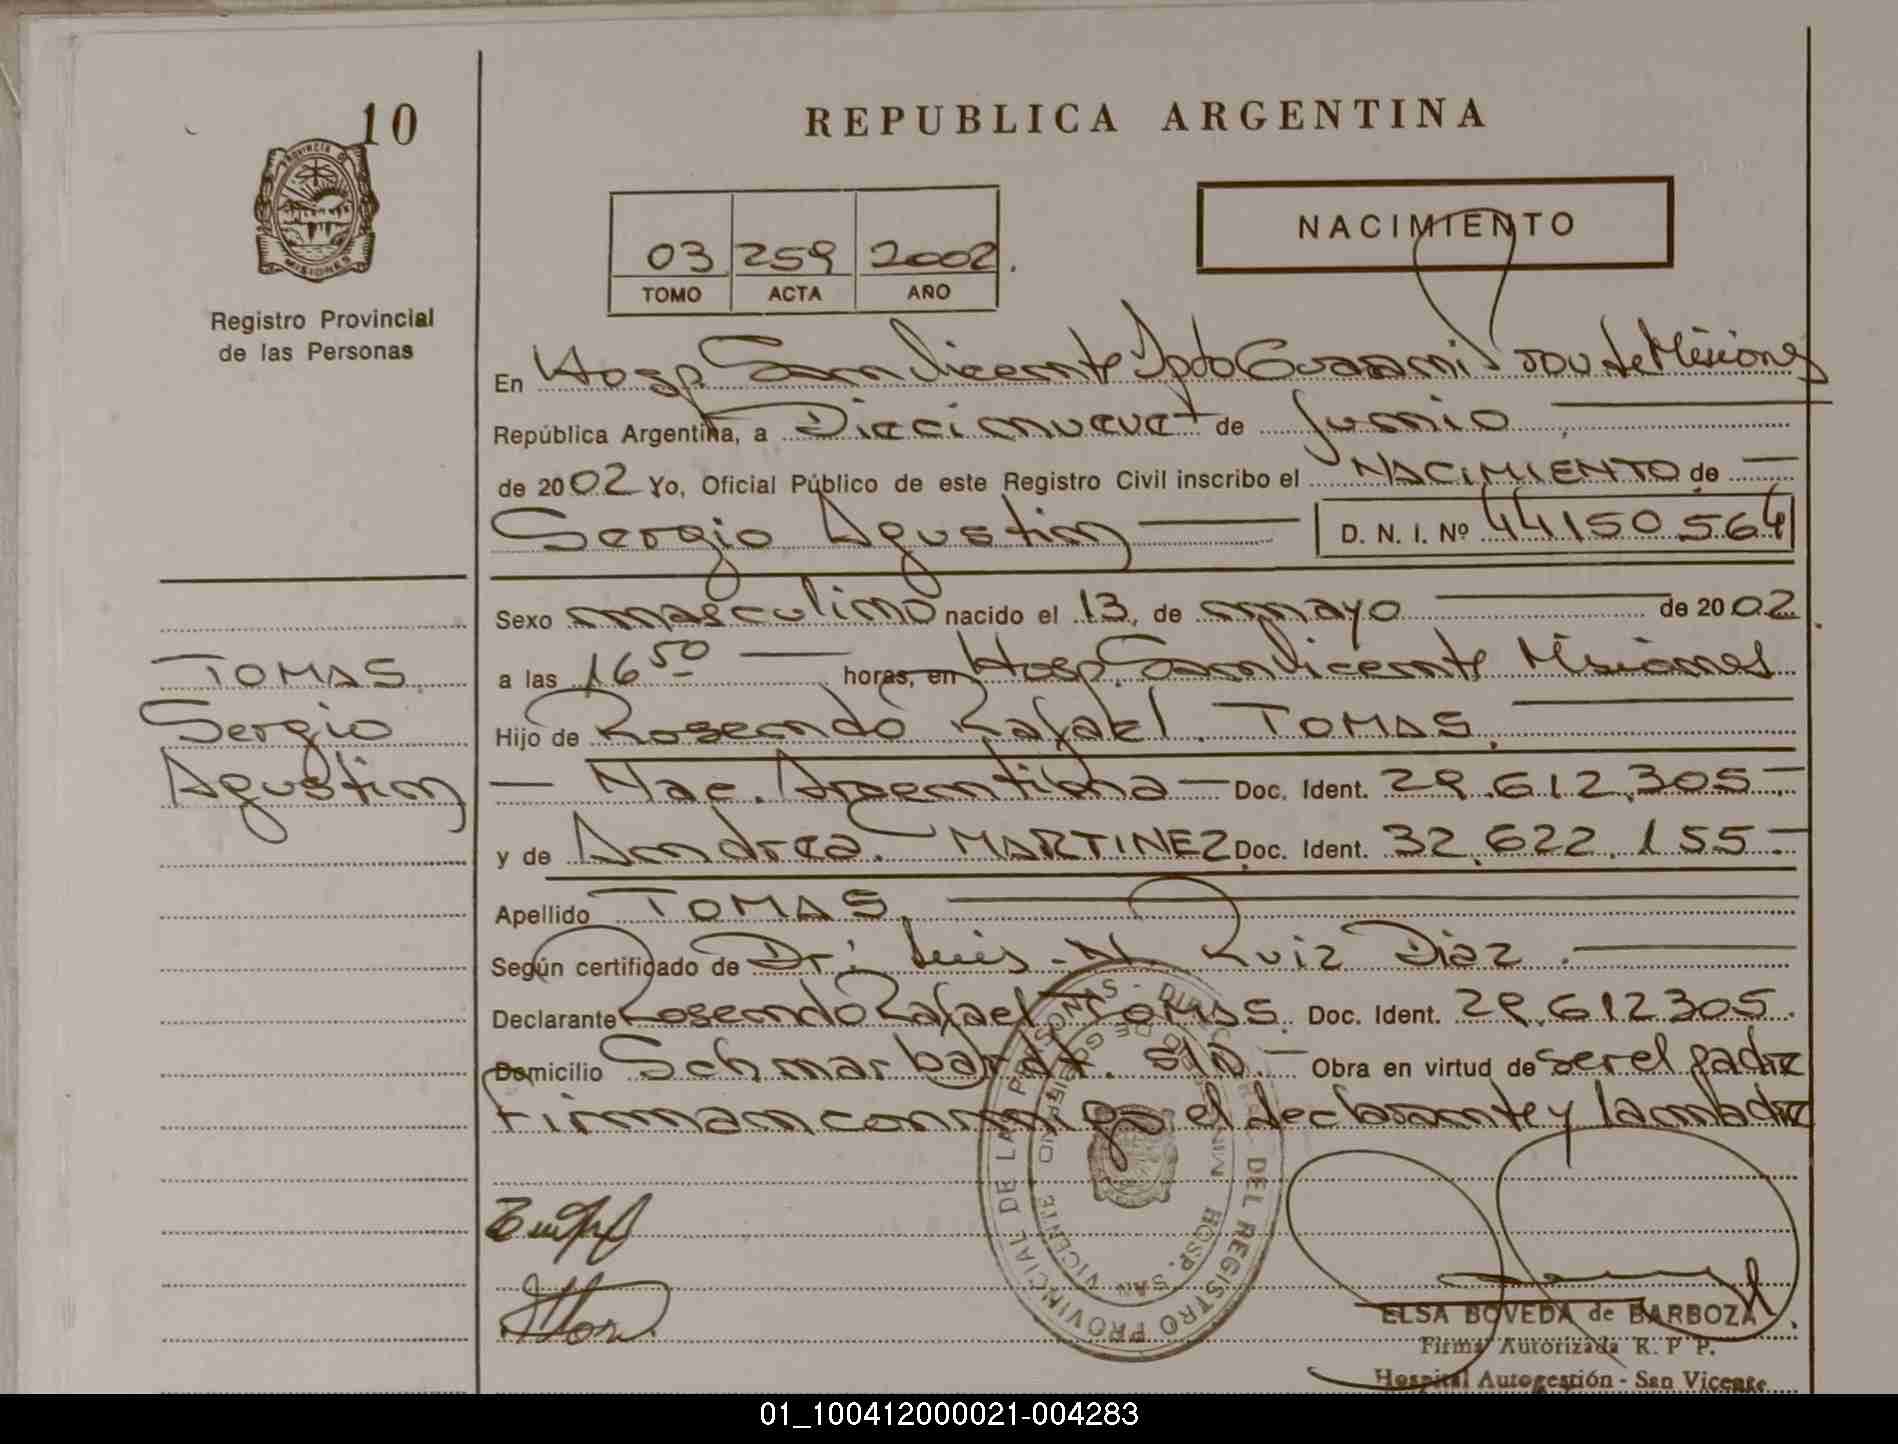 10
REPUBLICA ARGENTINA
PROVINCIA DE
MISIONES
Registro Provincial
de las Personas
NACIMIENTO
03 259 2002.
TOMO ACTA AÑO
En Hosp. San Vicente Dpto Guarani Prov de Misiones
República Argentina, a Diecinueve de Junio
de 2002 Yo, Oficial Público de este Registro Civil inscribo el NACIMIENTO de
Sergio Agustin D. N. I. Nº 44150564
Sexo masculino nacido el 13, de mayo de 2002.
a las 16 50 horas, en Hosp. San Vicente Misiones
Hijo de Rosendo Rafael TOMAS.
Nac. Argentina Doc. Ident. 29.612.305
y de Andrea MARTINEZ Doc. Ident. 32.622.155
Apellido TOMAS.
Según certificado de Dr: Luis N. Ruiz Diaz.
Declarante Rosendo Rafael TOMAS. Doc. Ident. 29.612305.
Domicilio Schmarbardt. S/N. Obra en virtud de ser el padre
Firman conmigo el declarante y la madre
TOMAS
Sergio
Agustin
DIRECCION GENERAL DEL REGISTRO PROVINCIAL DE LAS PERSONAS
HOSP. SAN VICENTE
ELSA BOVEDA de BARBOZA
Firma Autorizada R. P P.
Hospital Autogestión - San Vicente
01_100412000021-004283